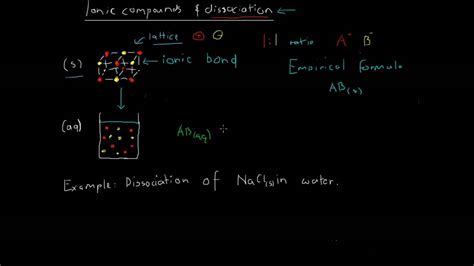 Ionic compounds & dissociation ←
lattice + - 1:1 ratio A⁻ B⁻
(s) ionic bond Empirical formula
AB(s)
(aq) AB(aq)
Example: Dissociation of NaCl(s) in water.